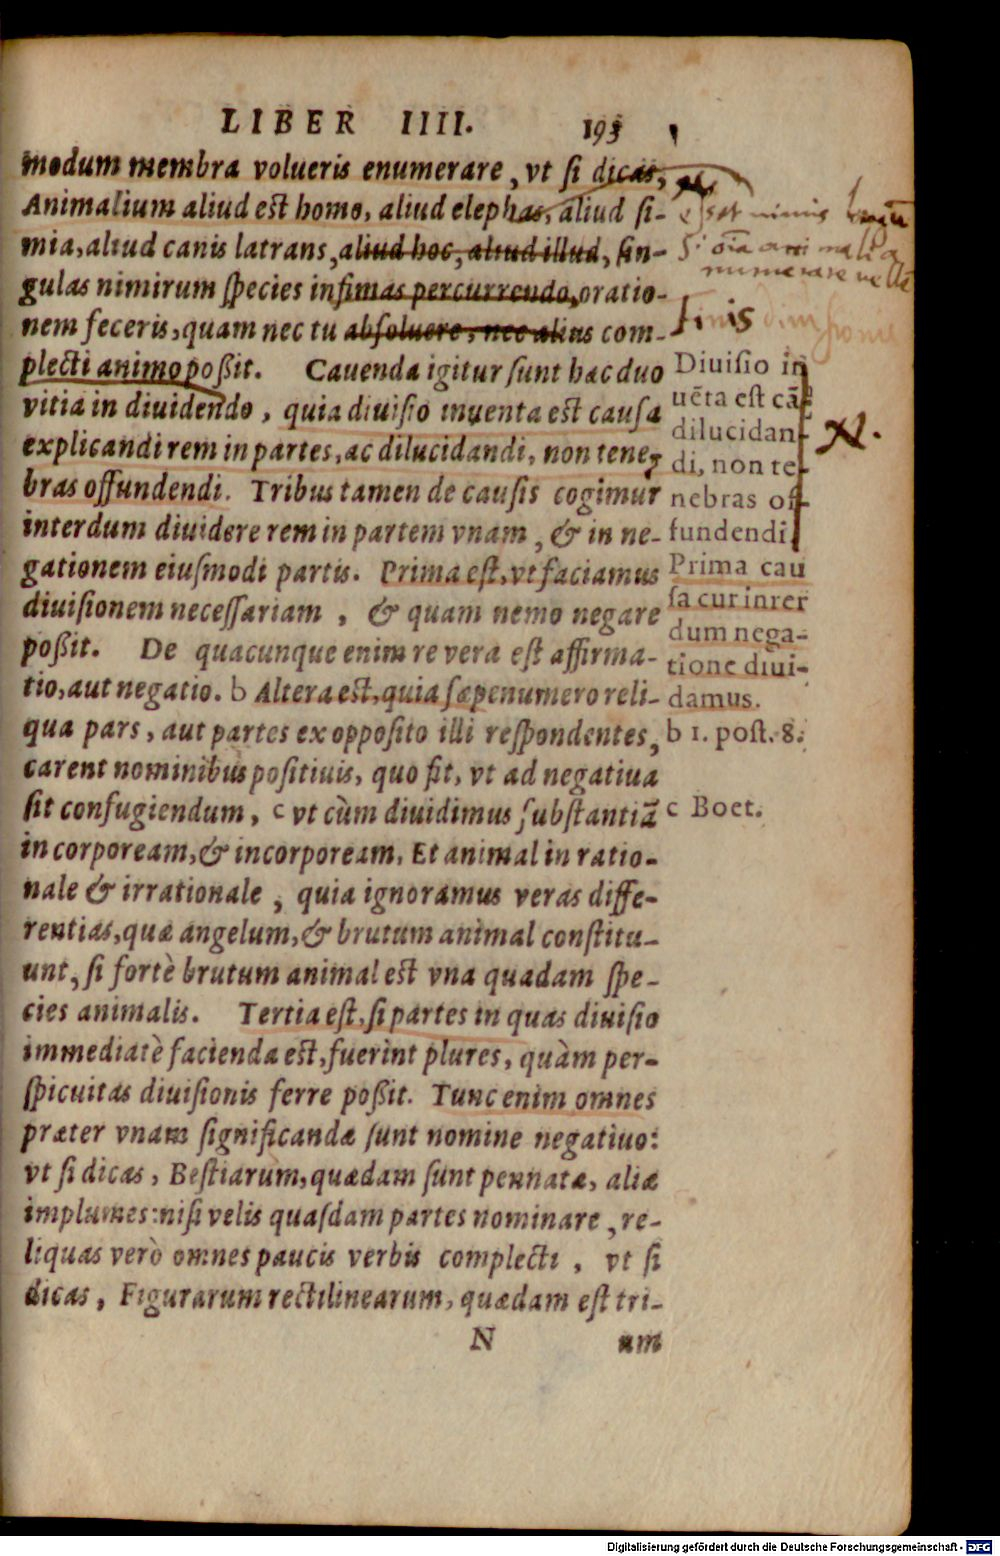 LIBER IIII. 193
modum membra volueris enumerare, vt ſi dicas,
Animalium aliud eſt homo, aliud elephas, aliud ſi-
mia, aliud canis latrans, aliud hoc, aliud illud, ſin-
gulas nimirum ſpecies infimas percurrendo, oratio-
nem feceris, quam nec tu abſoluere, nec alius com-
plecti animo poßit. Cauenda igitur ſunt hæc duo
vitia in diuidendo, quia diuiſio inuenta eſt cauſa
explicandi rem in partes, ac dilucidandi, non tene-
bras offundendi. Tribus tamen de cauſis cogimur
interdum diuidere rem in partem vnam, & in ne-
gationem eiuſmodi partis. Prima eſt, vt faciamus
diuiſionem neceſſariam, & quam nemo negare
poßit. De quacunque enim re vera eſt affirma-
tio, aut negatio. b Altera eſt, quia ſæpenumero reli-
qua pars, aut partes ex oppoſito illi reſpondentes,
carent nominibus poſitiuis, quo fit, vt ad negatiua
ſit confugiendum, c vt cùm diuidimus ſubſtantiã
in corpoream, & incorpoream. Et animal in ratio-
nale & irrationale, quia ignoramus veras diffe-
rentias, quæ angelum, & brutum animal conſtitu-
unt, ſi fortè brutum animal eſt vna quadam ſpe-
cies animalis. Tertia eſt, ſi partes in quas diuiſio
immediatè facienda eſt, fuerint plures, quàm per-
ſpicuitas diuiſionis ferre poßit. Tunc enim omnes
præter vnam ſignificandæ ſunt nomine negatiuo:
vt ſi dicas, Beſtiarum, quædam ſunt pennatæ, aliæ
implumes: niſi velis quaſdam partes nominare, re-
liquas verò omnes paucis verbis complecti, vt ſi
dicas, Figurarum rectilinearum, quædam eſt tri-
N um
esset nimis
Si oĩa animalia
numerare
finis diuisionis
Diuiſio in
uẽta eſt cã
dilucidan-
di, non te-
nebras of-
fundendi
Prima cau
ſa cur inrer
dum nega-
tione diui-
damus.
b 1. poſt. 8.
c Boet.
Digitalisierung gefördert durch die Deutsche Forschungsgemeinschaft - DFG